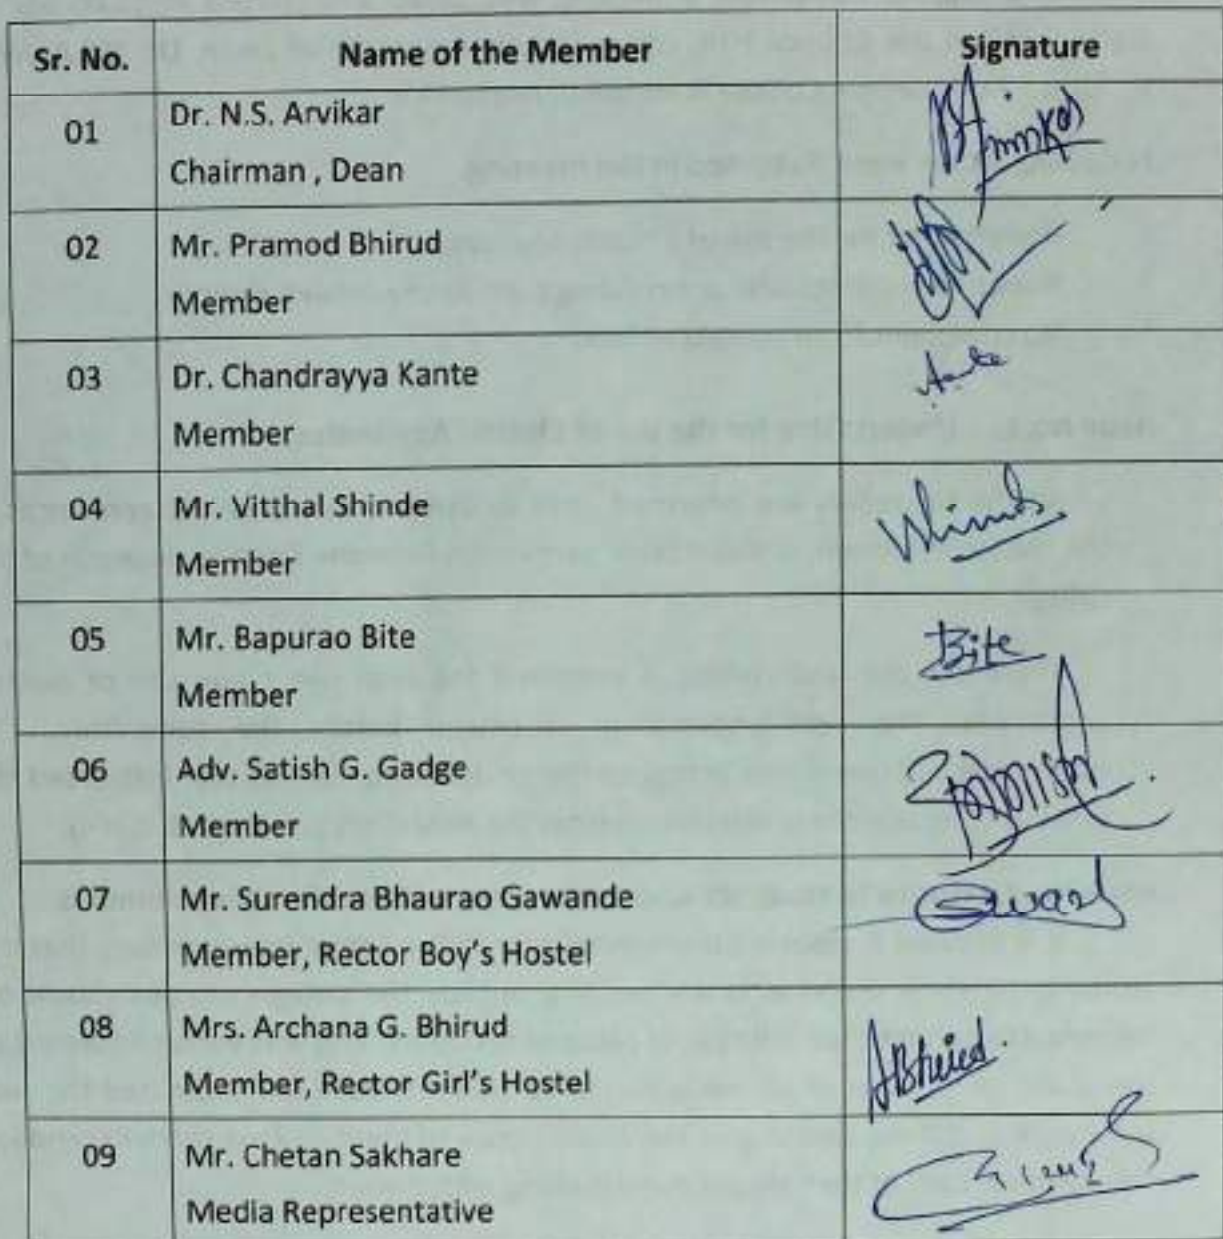 Sr. No. Name of the Member Signature
01 Dr. N.S. Arvikar
Chairman , Dean
02 Mr. Pramod Bhirud
Member
03 Dr. Chandrayya Kante
Member
04 Mr. Vitthal Shinde
Member
05 Mr. Bapurao Bite Bite
Member
06 Adv. Satish G. Gadge
Member
07 Mr. Surendra Bhaurao Gawande
Member, Rector Boy's Hostel
08 Mrs. Archana G. Bhirud
Member, Rector Girl's Hostel ABhirud
09 Mr. Chetan Sakhare
Media Representative